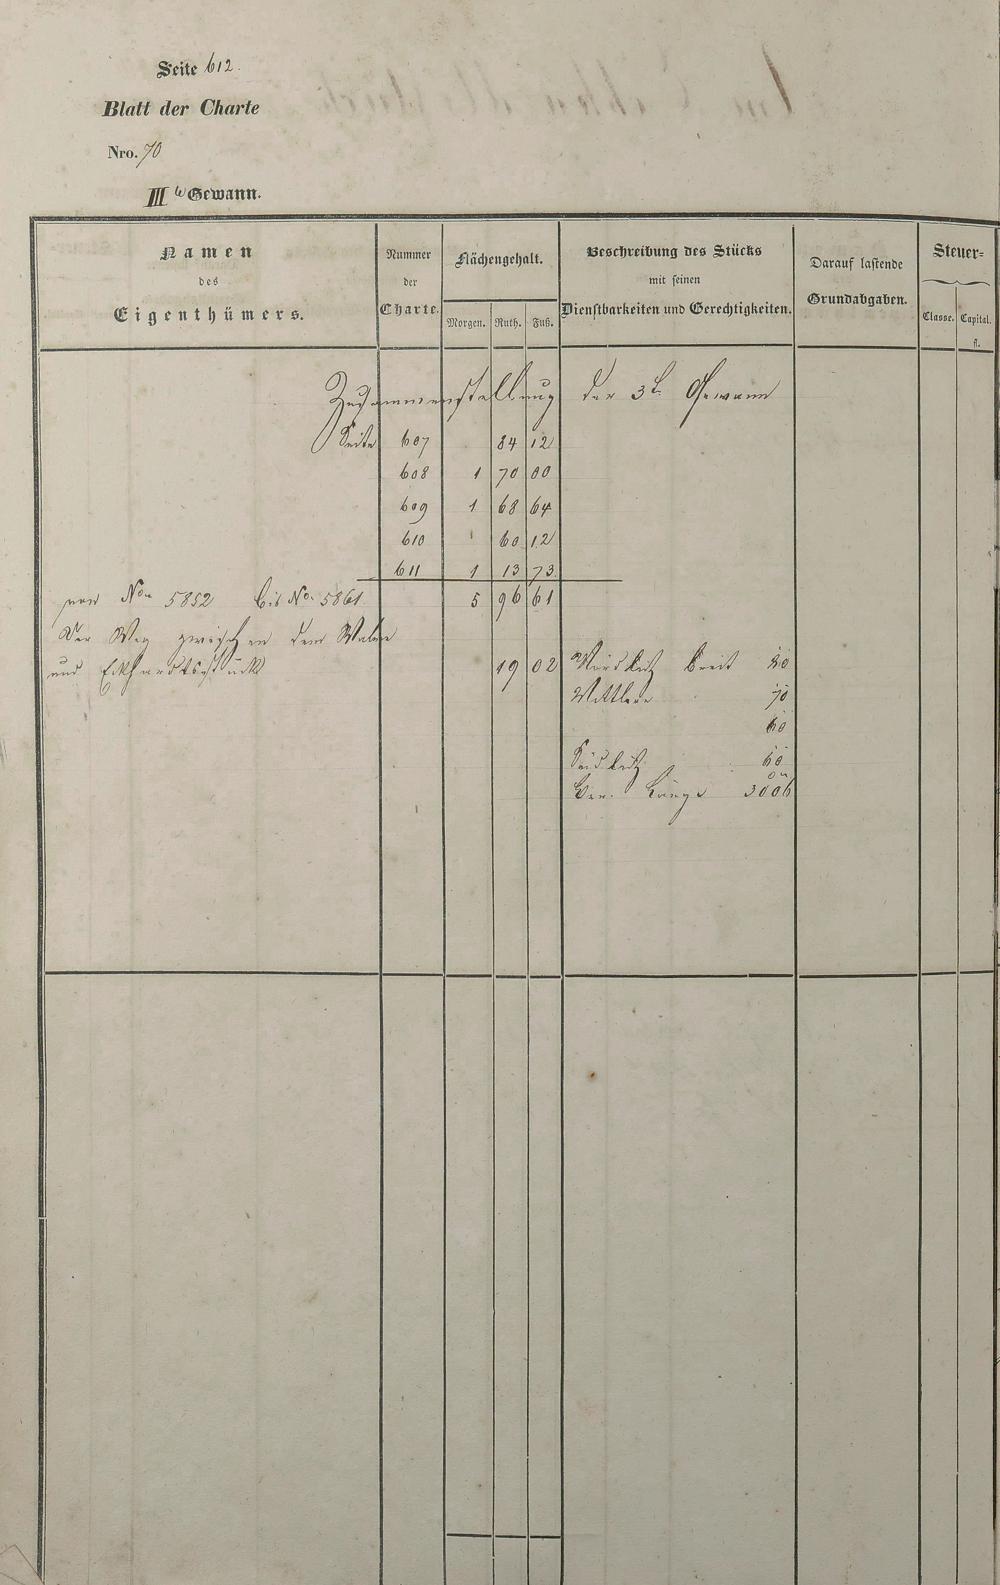 Seite 612.
Blatt der Charte
Nro. 70
III te Gewann.
Namen des Eigenthümers.
Nummer der Charte.
Flächengehalt.
Morgen. Ruth. Fuß.
Beschreibung des Stücks mit seinen Dienstbarkeiten und Gerechtigkeiten.
Darauf lastende Grundabgaben.
Steuer-
Classe. Capital. fl.
Zusammenstellung der 3t. Gewann
Seite 607 84 12
608 1 70 00
609 1 68 64
610 60 12
611 1 13 73
von Non 5852 bis No. 5861. 5 96 61
Der Weg zwischen dem
und 19 02 breit 80
Mittlere 70
60
60
Länge 3006